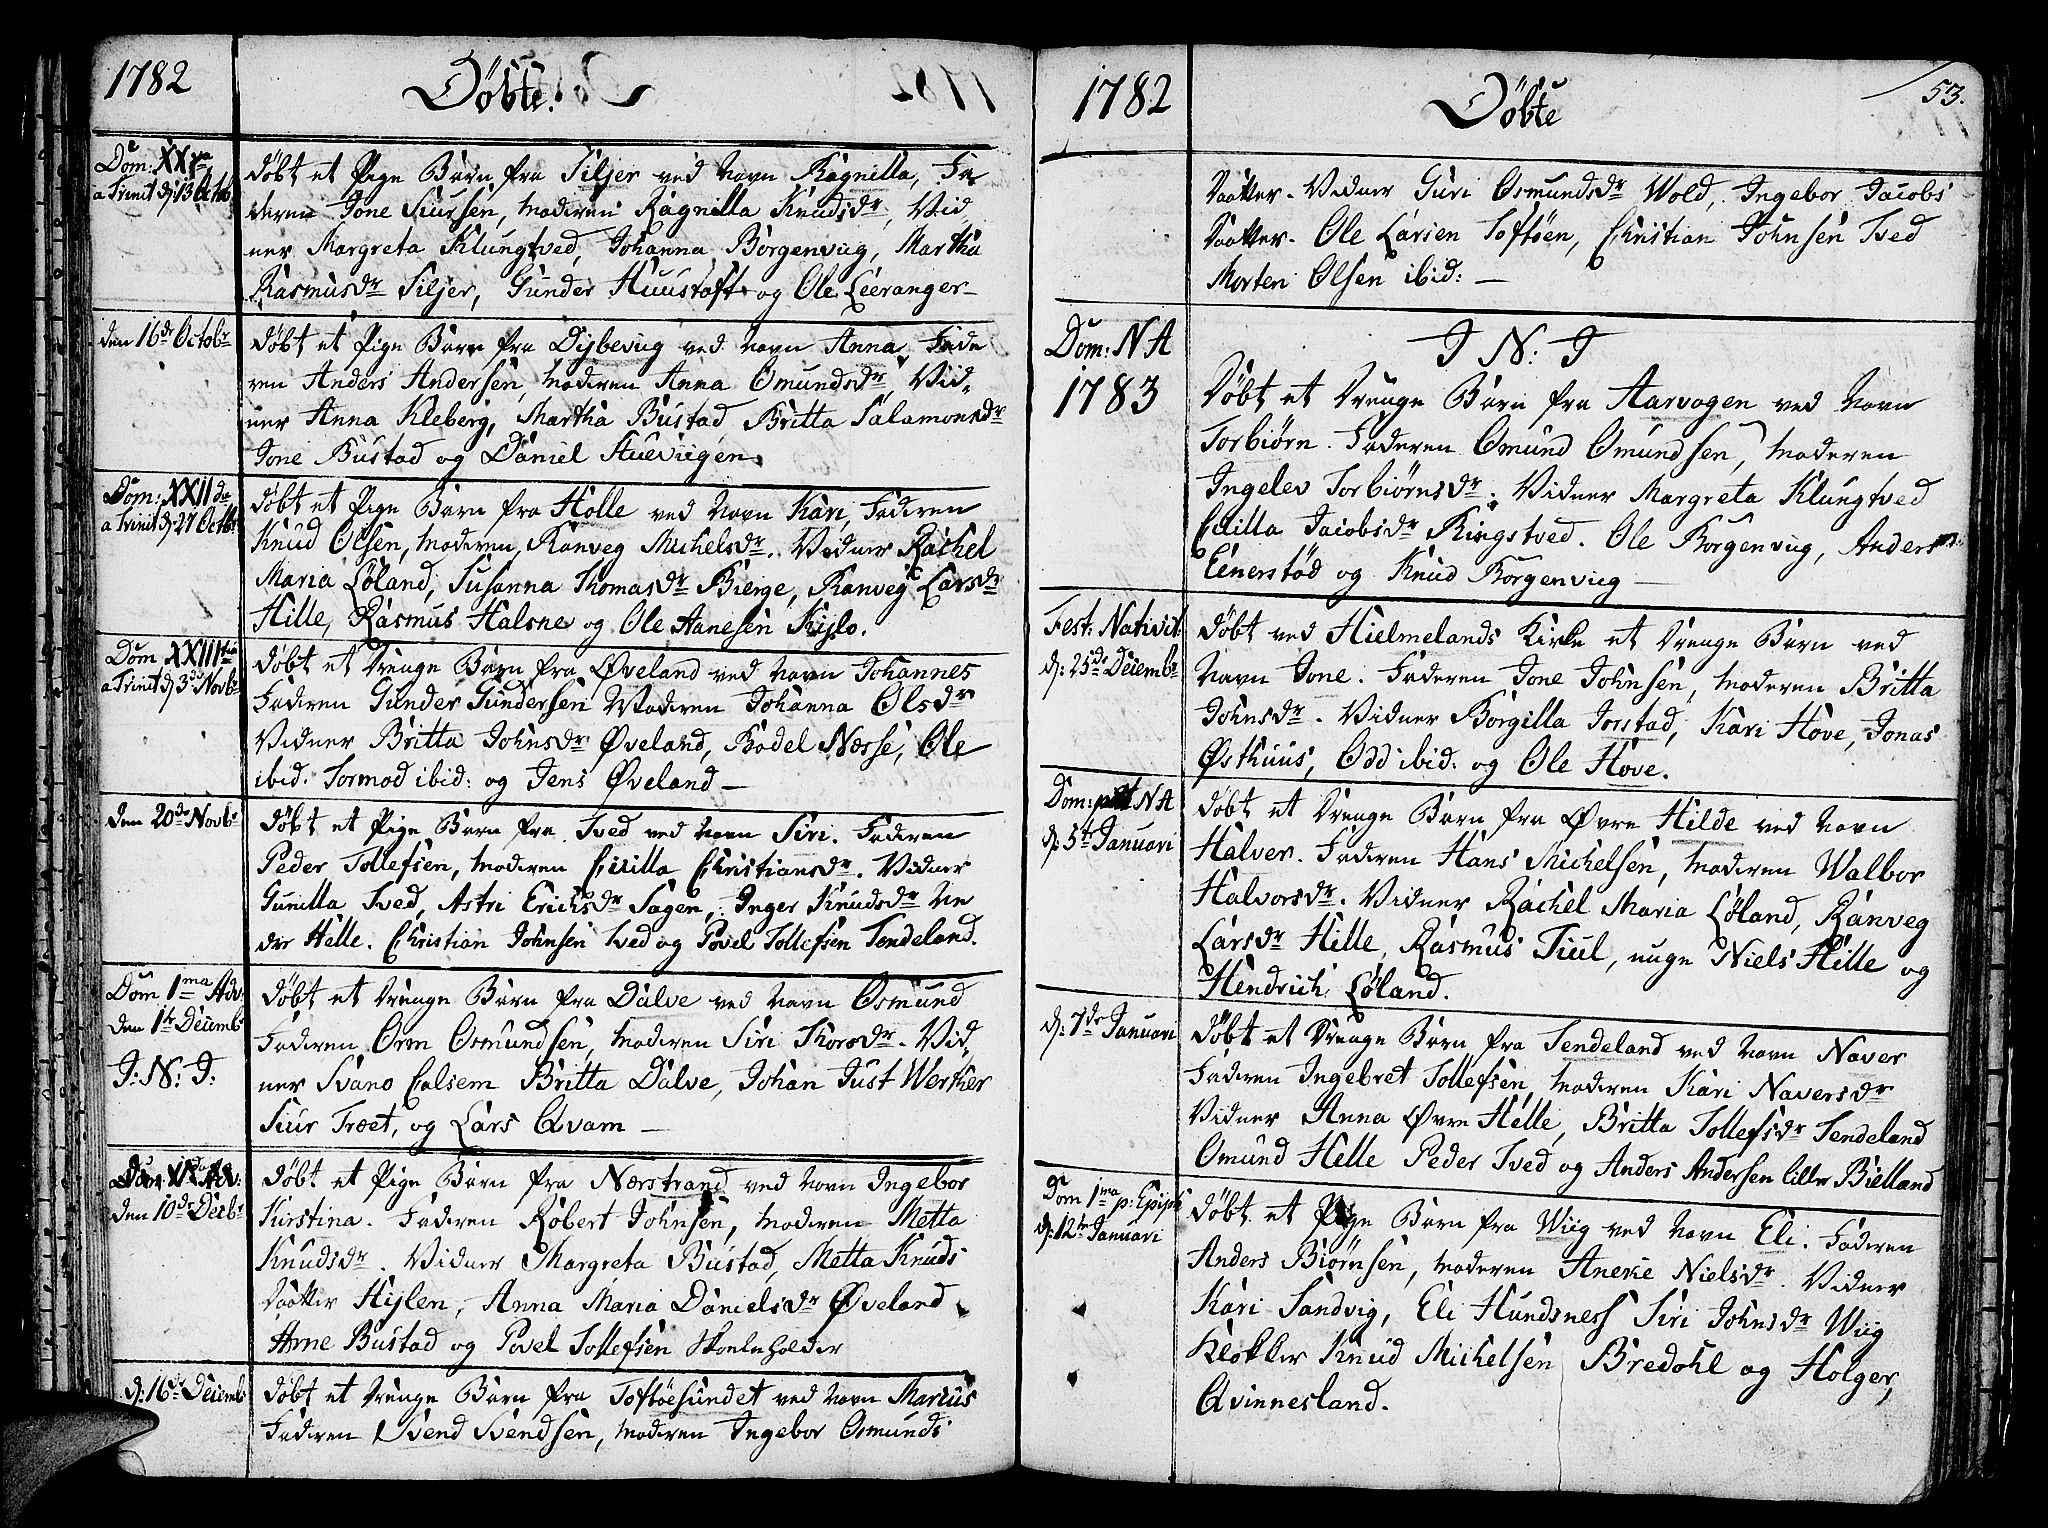 1782
Döbte.
Dom: XX
a Trinit d: 13 Octob
döbt et Pige Barn fra Siljer ved Navn Ragnilla, Fa
deren Jone Siursen, Moderen Ragnilla Knudsdr, Vid
ner Margreta Klungtved, Johanna Borgenvug, Martha
Rasmusdr Siljer, Gunder Huustoft og Ole Leeranger
den 16de Octobr
döbt et Pige Barn fra Dybevug ved Navn Anna, Fade
ren Anders Andersen, Moderen Anna Omundsdr Vid,,
ner Anna Kleberg, Martha Bustad Britta Salamonsdr
Jone Bustad og Daniel
Dom: XXIIda
a Trinit d: 27 Octobr
döbt et Pige Barn fra Holle ved Navn Kari, Faderen
Knud Olsen, Moderen Ranveg Michelsdr. Vidner Rachel
Maria Löland, Susanna Thomasdr Bierge, Ranveg Larsdr
Hille, Rasmus Halsne og Ole Aanesen Kijlo.
Dom XXIIItia
a Trinit d: 3de Novbr
döbt et Drenge Barn fra Øveland ved Navn Johannes
Faderen Gunder Gundersen Moderen Johanna Olsdr
Vidner Britta Johnsdr Øveland, Bodel Næsse, Ole
ibid. Tormod ibid: og Jens Øveland —
den 20de Novbr
döbt et Pige Barn fra Tved ved Navn Siri. Faderen
Peder Tollefsen, Moderen Cicilla Christiansdr. Vidner
Gunilla Tved, Astri Erichsdr Sagen, Inger Knudsdr Ne
dre Helle. Christian Johnsen Tved og Povel Tollefsen Tendeland.
Dom 1ma Adv:
den 1te Decembr
J: N: J:
döbt et Drenge Barn fra Dalve ved Navn Osmund
Faderen Orm Osmundsen, Moderen Siri Thorsdr. Vid,,
ner Svano Calsem Britta Dalve, Johan Just Werther
Siur Træet, og Lars Qvam —
den 10de Decbr
döbt et Pige Barn fra Næstrand ved Navn Ingebor
Kirstina. Faderen Robert Johnsen, Moderen Metta
Knudsdr. Vidner Margreta Bustad, Metta Knuds
Daatter Hijlen, Anna Maria Danielsdr Øveland
Arne Bustad og Povel Tollefsen Skoeleholder
d: 16de Decembr
döbt et Drenge Barn fra Toftöesundet ved Navn Marcus
Faderen Svend Svendsen, Moderen Ingebor Osmunds
1782
Döbte
53.
Daatter. Vidner Guri Osmundsdr Wold, Ingebor Jacobs
Daatter. Ole Larsen Toftöen, Christian Johnsen Tved
Morten Olsen ibid: —
Dom: NA
1783
J N: J
Döbt et Drenge Barn fra Aarvogen ved Navn
Torbiörn. Faderen Omund Omundsen, Moderen
Ingelev Torbiörnsdr. Vidner Margreta Klungtved
Cicilla Jacobsdr Ringstved. Ole Borgenvug, Anders
Einerstöd og Knud Borgenvug —
Fest: Nativit
d: 25de Decembr
döbt ved Hielmelands Kirke et Drenge Barn ved
Navn Jone. Faderen Jone Johnsen, Moderen Britta
Johnsdr. Vidner Borgilla Jorstad, Kari Hove, Jonas
Østhuus, Odd ibid: og Ole Hove.
Dom: post NA
d: 5te Januari
döbt et Drenge Barn fra Øvre Hilde ved Navn
Halver. Faderen Hans Michelsen, Moderen Walbor
Halvorsdr. Vidner Rachel Maria Löland, Ranveg
Larsdr Hille, Rasmus Tiul, unge Niels Hille og
Hendrich Löland.
d: 7de Januari
döbt et Drenge Barn fra Tendeland ved Navn Naver
Faderen Ingebret Tollefsen, Moderen Kari Naversdr
Vidner Anna Øvre Helle, Britta Tollefsdr Tendeland
Omund Helle Peder Tved og Anders Andersen lille Bielland
Dom 1ma p: Epiph
d: 12te Januari
döbt et Pige Barn fra Wiig ved Navn Eli. Faderen
Anders Biörnsen, Moderen Aneke Nielsdr. Vidner
Kari Sandvig, Eli Hundsness Siri Johnsdr Wiig
Klokker Knud Michelsen Bredahl og Holger
Qvinnesland.